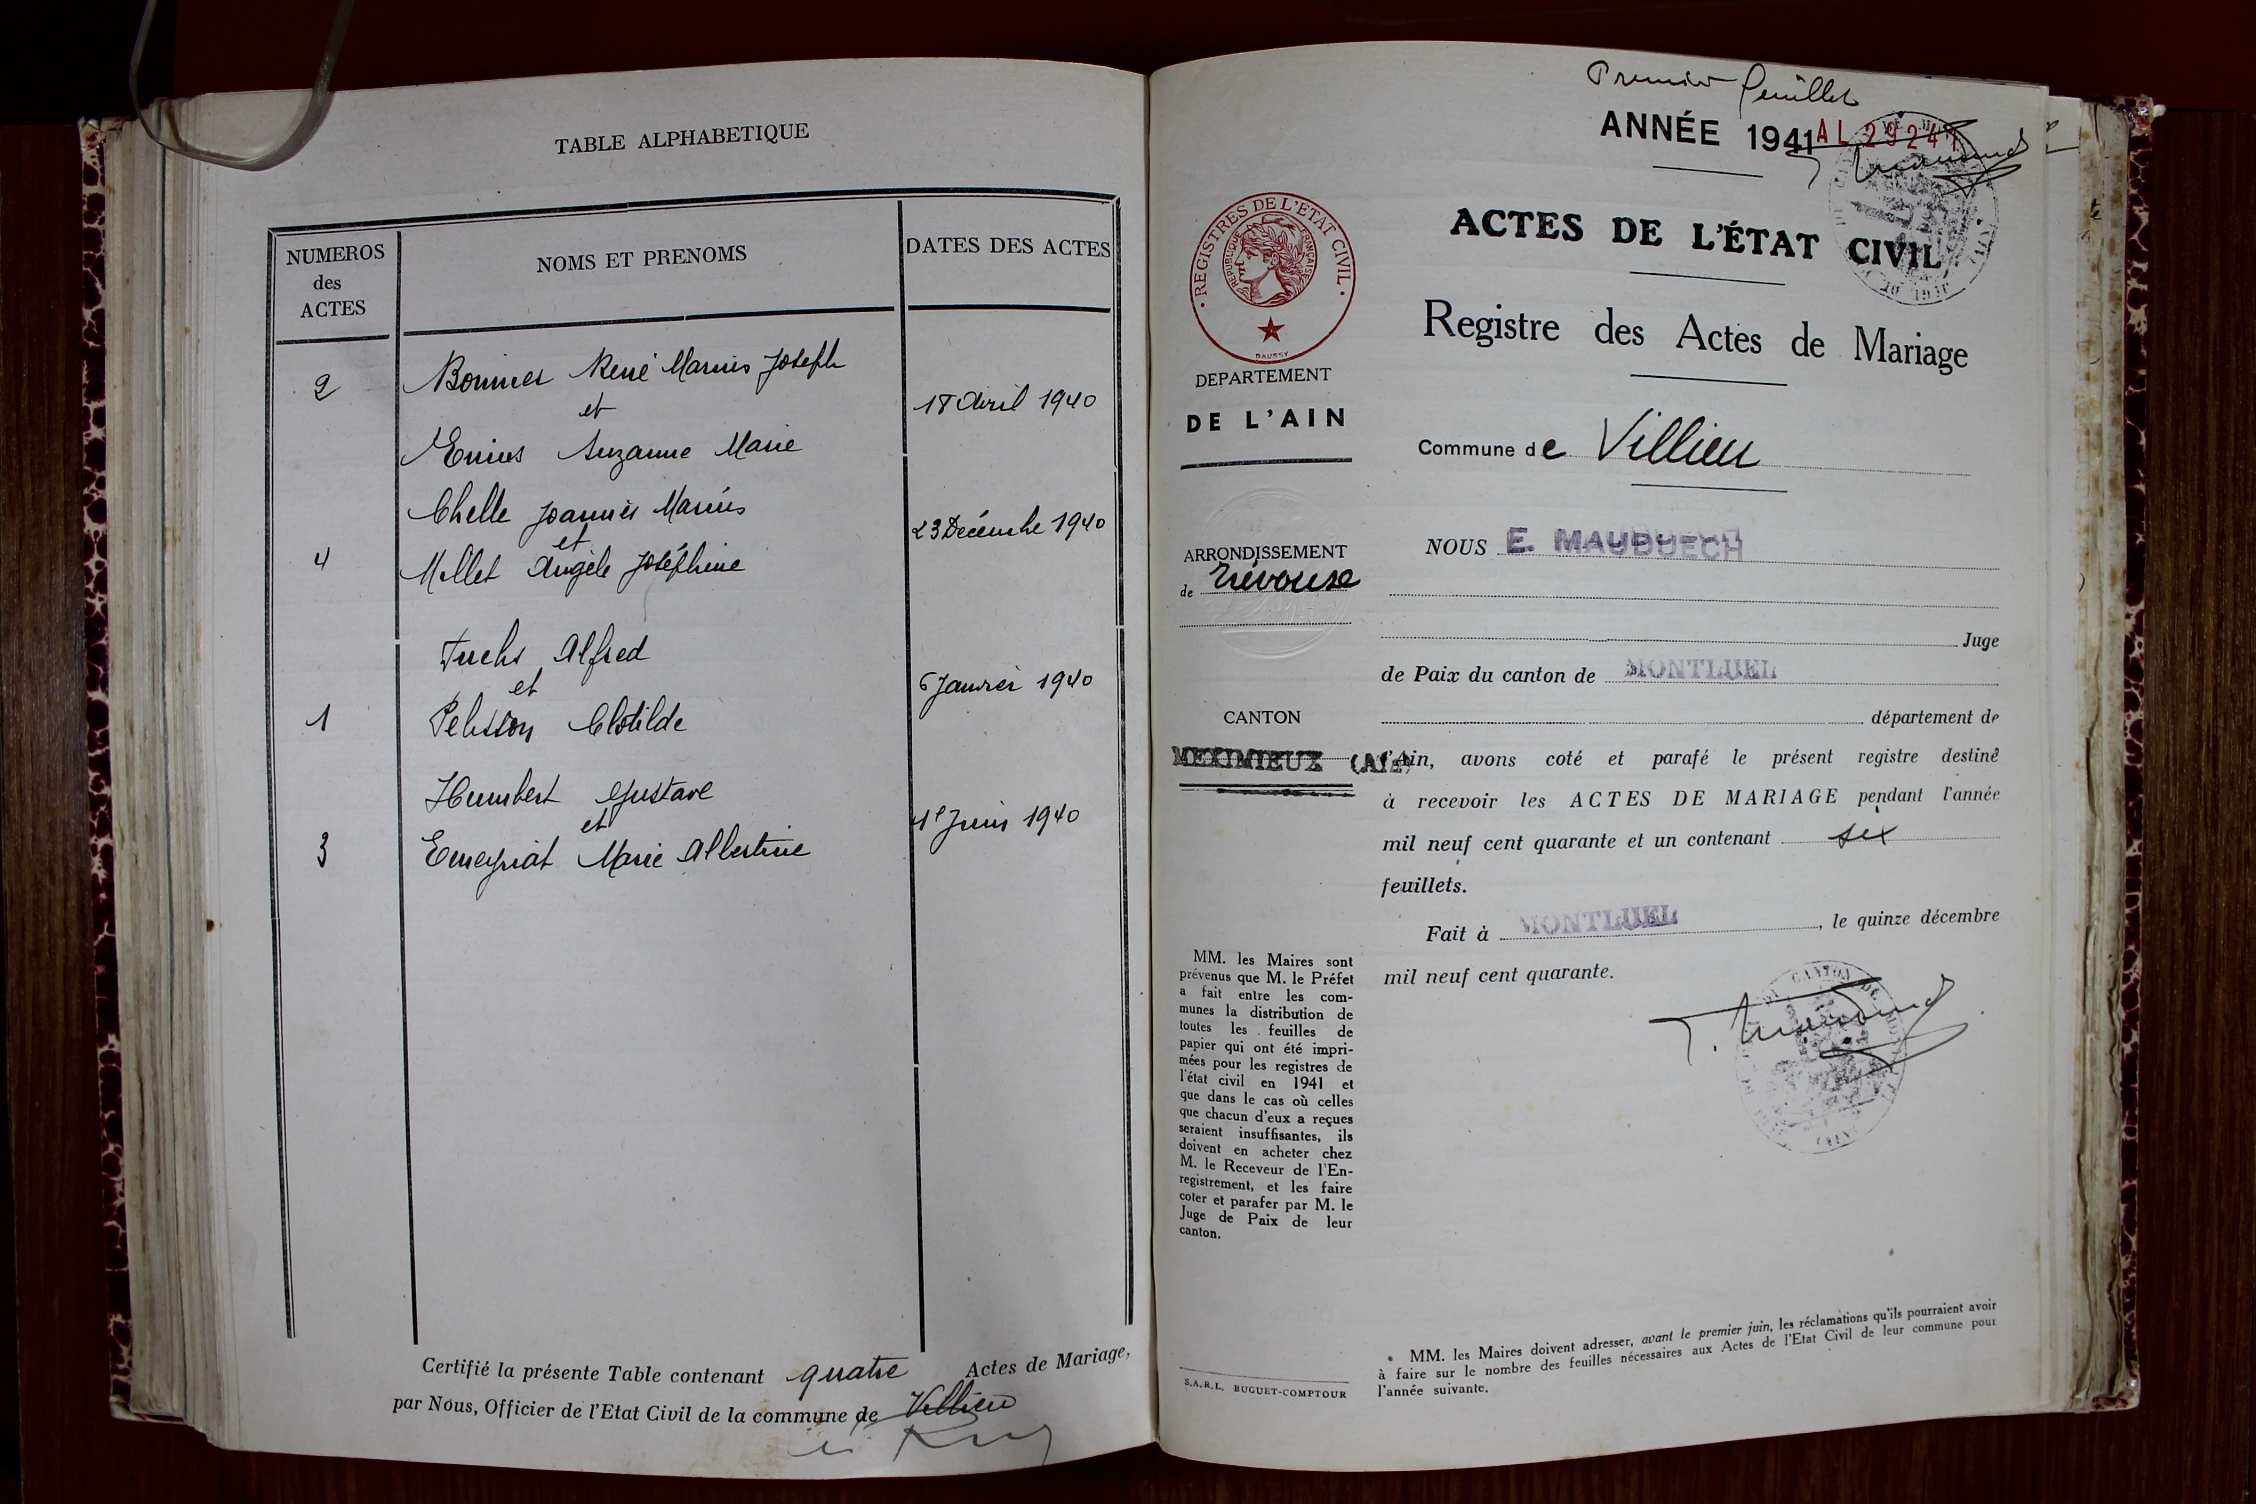 TABLE ALPHABETIQUE
NUMEROS
des
ACTES
NOMS ET PRENOMS
DATES DES ACTES
2
Bonnier René Marius Joseph
et
Suzanne Marie
18 Avril 1940
4
Chelle Joannès Marius
et
Millet Angèle Joséphine
23 Décembre 1940
1
Fuchs Alfred
et
Pelisson Clotilde
6 Janvier 1940
3
Humbert Gustave
et
Emeyriat Marie Albertine
1e Juin 1940
Certifié la présente Table contenant quatre Actes de Mariage,
par Nous, Officier de l'Etat Civil de la commune de Villieu
Premier feuillet
ANNÉE 1941
AL 29241
ACTES DE L'ÉTAT CIVIL
Registre des Actes de Mariage
Commune de Villieu
· REGISTRES DE L'ETAT CIVIL ·
REPUBLIQUE FRANÇAISE
DAUSSY
DEPARTEMENT
DE L'AIN
ARRONDISSEMENT
de Trévoux
CANTON
MEXIMIEUX (Ain)
NOUS E. MAUDUECH
Juge
de Paix du canton de MONTLUEL
département de
l'Ain, avons coté et parafé le présent registre destiné
à recevoir les ACTES DE MARIAGE pendant l'année
mil neuf cent quarante et un contenant six
feuillets.
Fait à MONTLUEL, le quinze décembre
mil neuf cent quarante.
MM. les Maires sont
prévenus que M. le Préfet
a fait entre les com-
munes la distribution de
toutes les feuilles de
papier qui ont été impri-
mées pour les registres de
l'état civil en 1941 et
que dans le cas où celles
que chacun d'eux a reçues
seraient insuffisantes, ils
doivent en acheter chez
M. le Receveur de l'En-
registrement, et les faire
coter et parafer par M. le
Juge de Paix de leur
canton.
S.A.R.L. BUGUET-COMPTOUR
MM. les Maires doivent adresser, avant le premier juin, les réclamations qu'ils pourraient avoir
à faire sur le nombre des feuilles nécessaires aux Actes de l'Etat Civil de leur commune pour
l'année suivante.